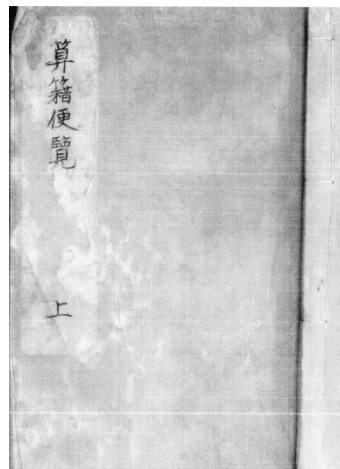 算籍便覧
上